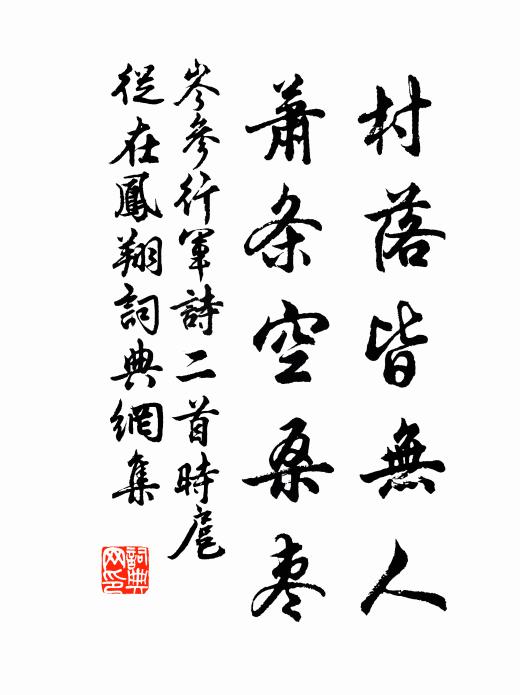 村落皆無人
蕭条空桑棗
岑參行軍詩二首時扈
從在鳳翔詞典網集
詞典
网印